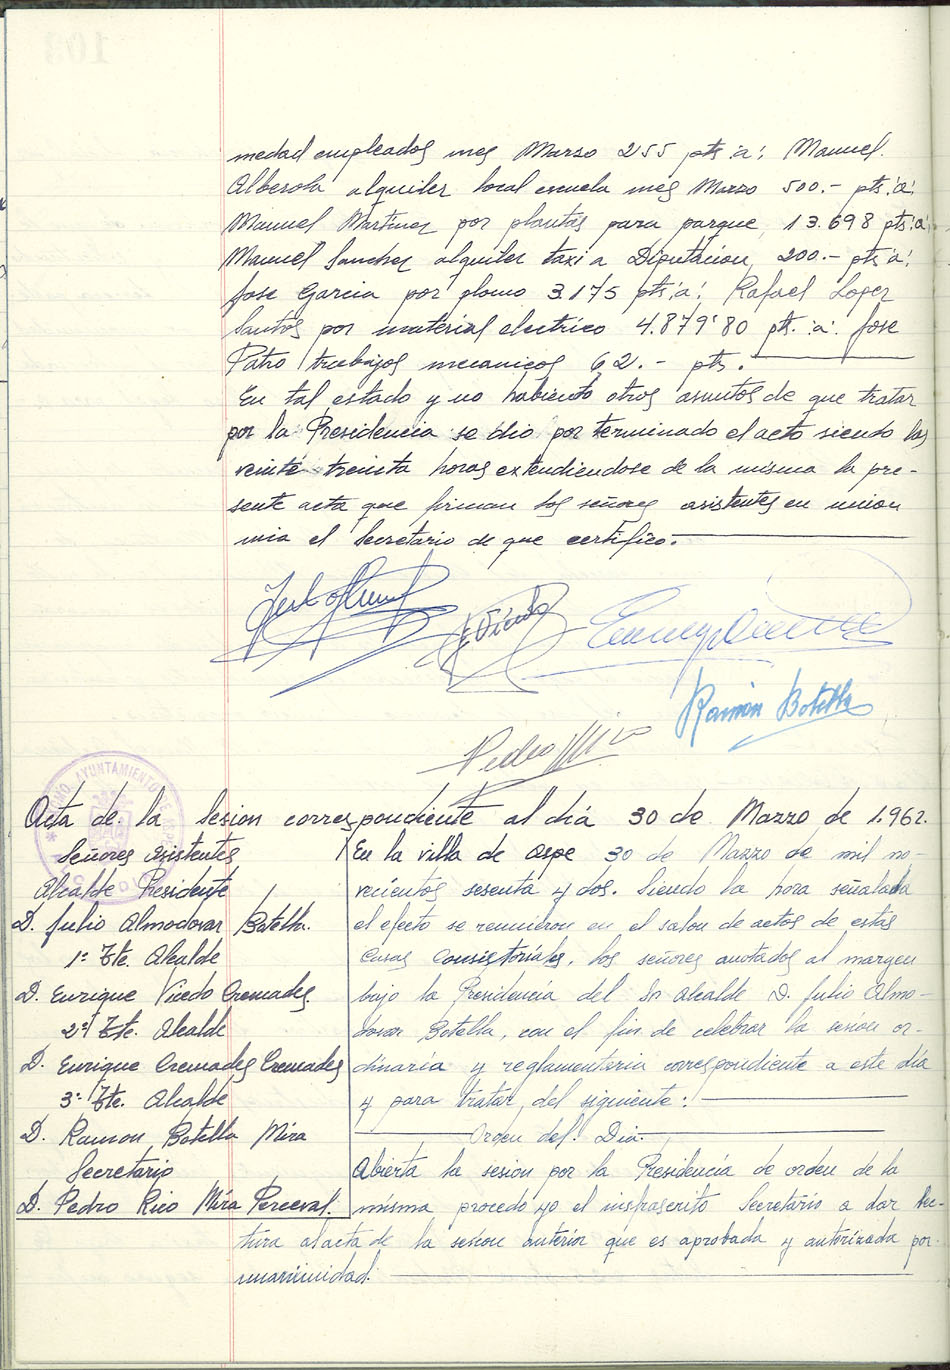 medad empleados mes Marzo 255 pts:a; Manuel
Alberola alquiler local escuela mes Marzo 500.- pts:a;
Manuel Martinez por plantas para parque, 13.698 pts:a;
Manuel Sanchez alquiler taxi a Diputacion, 200.- pts:a;
Jose Garcia por plomo 3.175 pts:a; Rafael Lopez
Santos por material electrico 4.879'80 pts.:a. Jose
Patro trabajos mecanicos 62.- pts.
En tal estado y no habiento otros asuntos de que tratar
por la Presidencia se dio por terminado el acto siendo las
veinte treinta horas extendiendose de la misma la pre-
sente acta que firman los señores asistentes en union
mia el Secretario de que certifico.-
E Vicedo
Ramón Botella
Pedro Mira
AYUNTAMIENTO DE
Acta de la sesion correspondiente al dia 30 de Marzo de 1.962.
Señores asistentes
Alcalde Presidente
D. Julio Almodovar Botella.
1º Tte. Alcalde
D. Enrique Vicedo Cremades
2º Tte. Alcalde
D. Enrique Cremades Cremades
3º Tte. Alcalde
D. Ramon Botella Mira
Secretario
D. Pedro Rico Mira Perceval.
En la villa de Aspe 30 de Marzo de mil no-
vecientos sesenta y dos. Siendo la hora señalada
el efecto se reunieron en el salon de actos de estas
Casas Consistoriales, los señores anotados al margen
bajo la Presidencia del Sr Alcalde D. Julio Almo-
dovar Botella, con el fin de celebrar la sesion or-
dinaria y reglamentaria correspondiente a este día
y para tratar del siguiente:
Orden del Dia.
Abierta la sesion por la Presidencia de orden de la
misma procedo yo el infraserito Secretario a dar lec-
tura al acta de la sesion anterior que es aprobada y autorizada por
unanimidad.